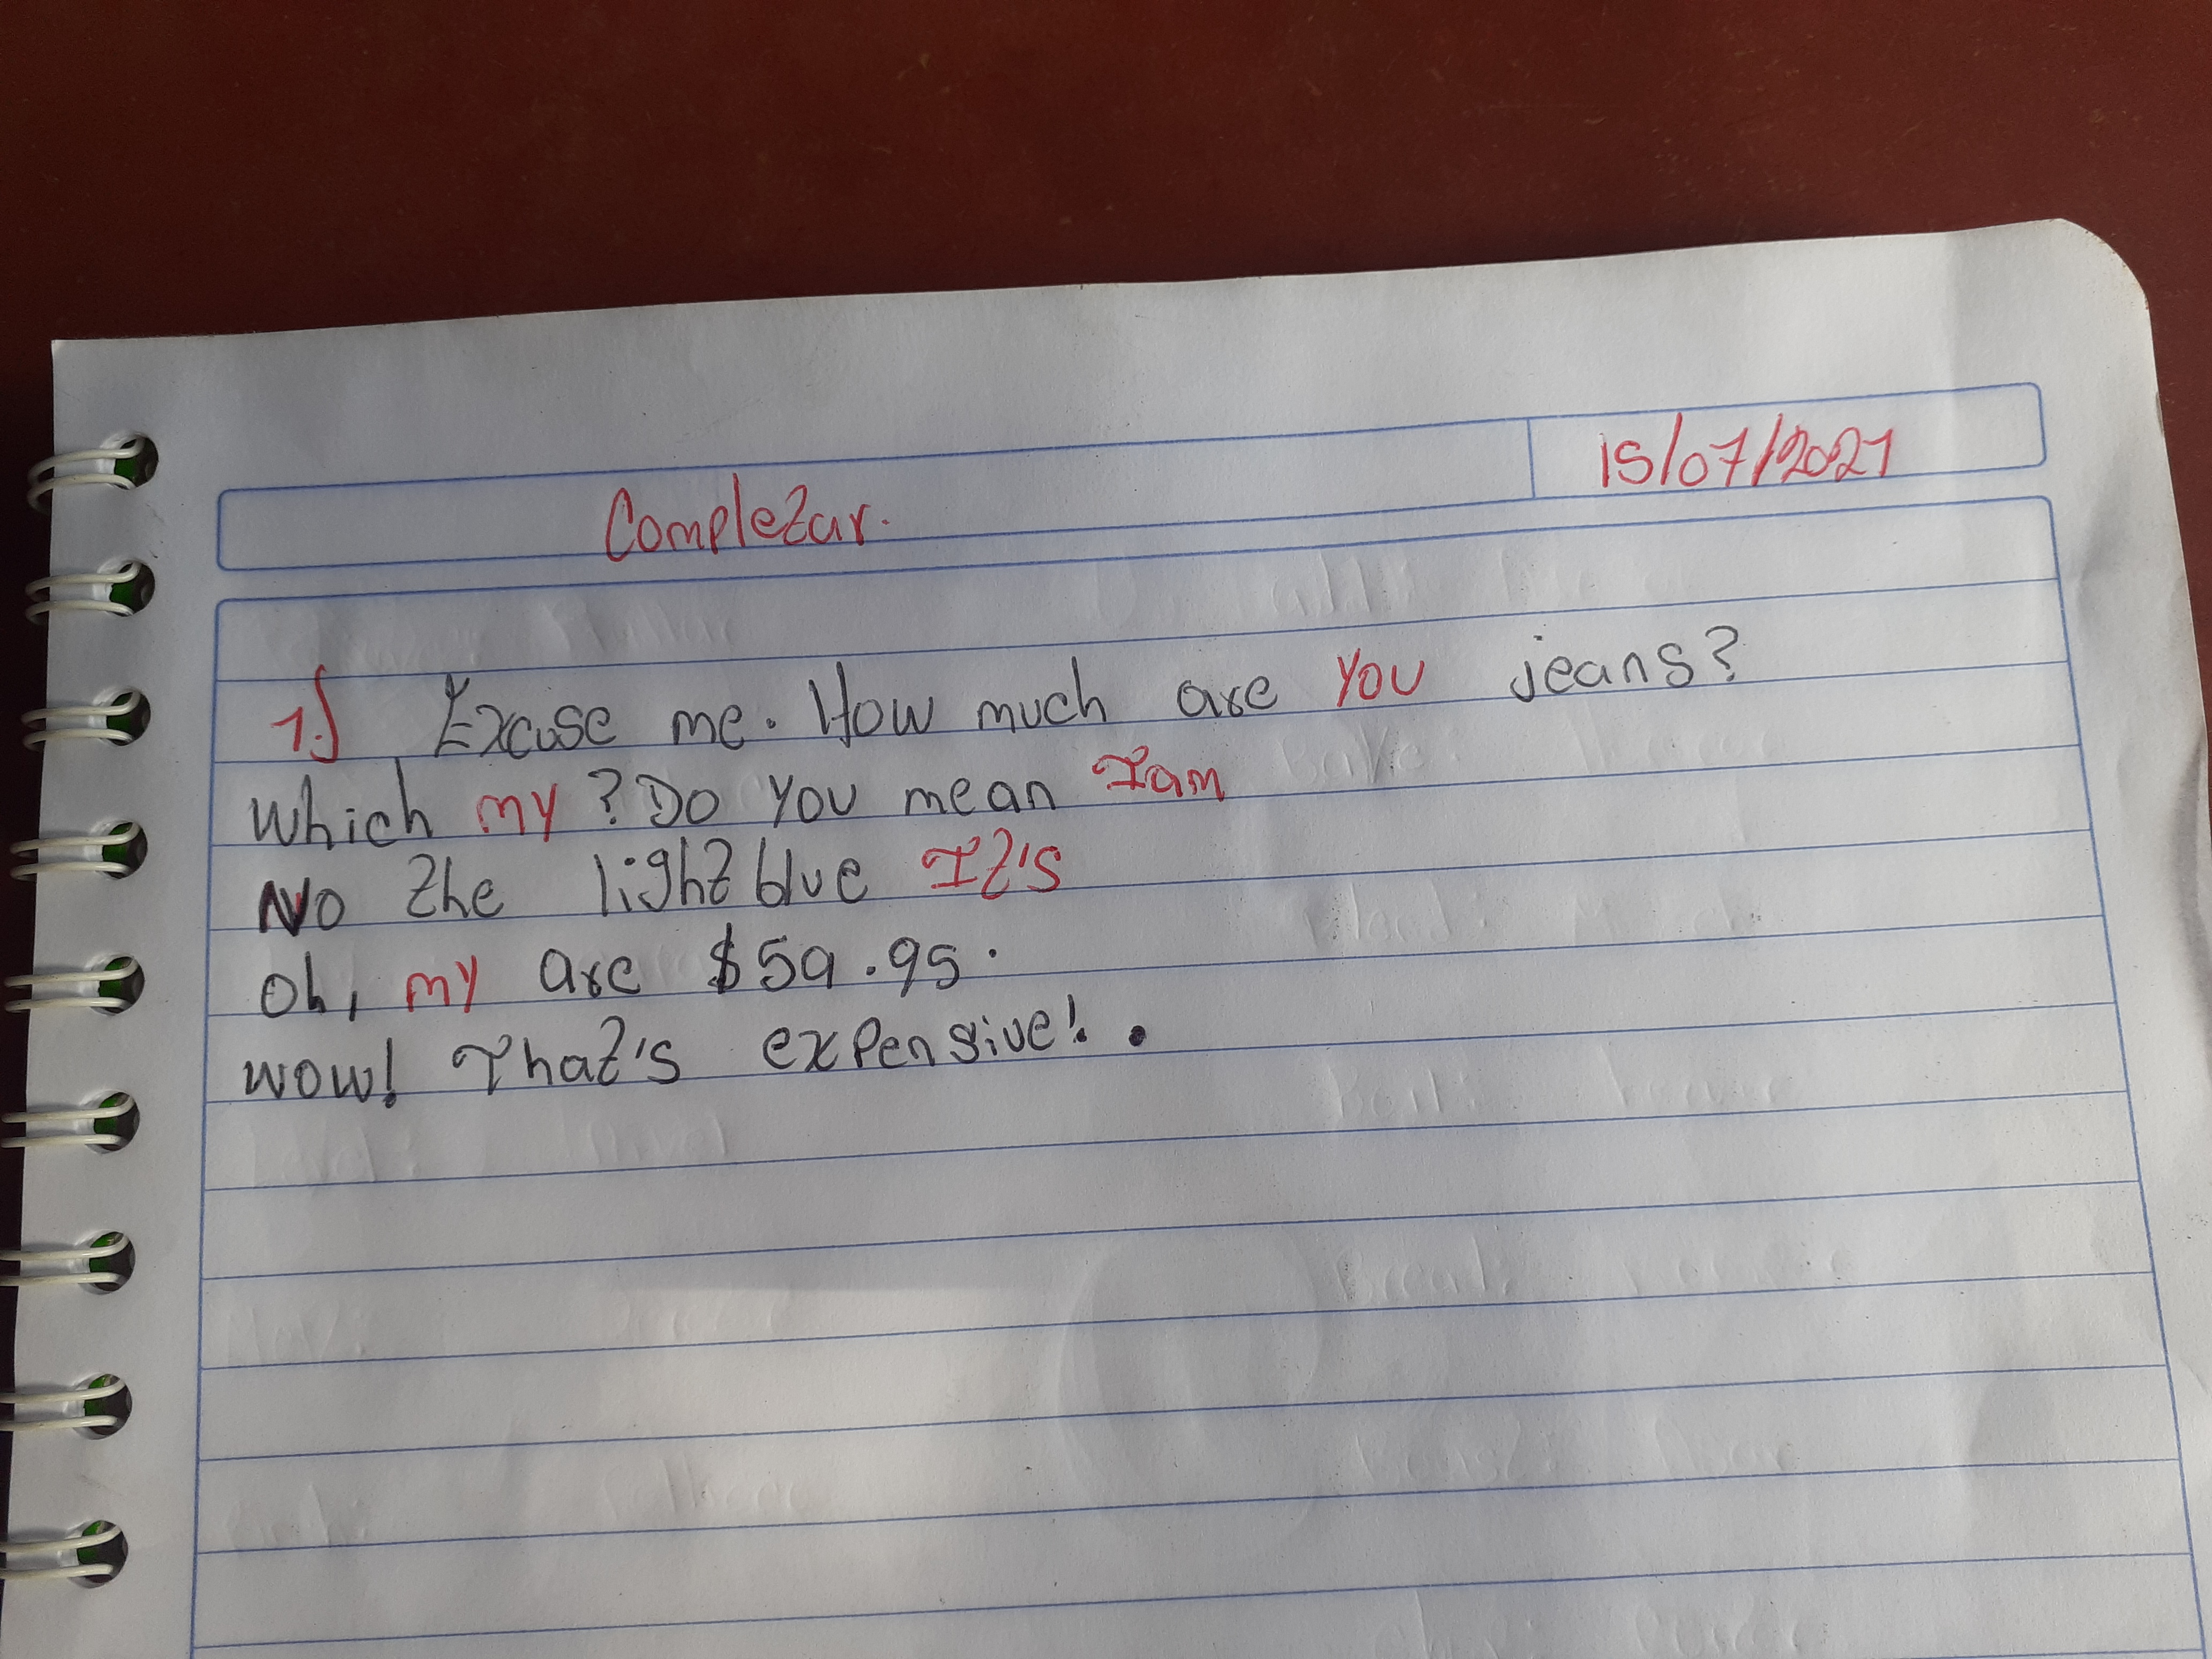 Completar.
15/07/2021
1.) Excuse me. How much are you jeans?
Which my? Do you mean I am
No the light blue It's
Oh, my are $59.95.
wow! That's expensive!.